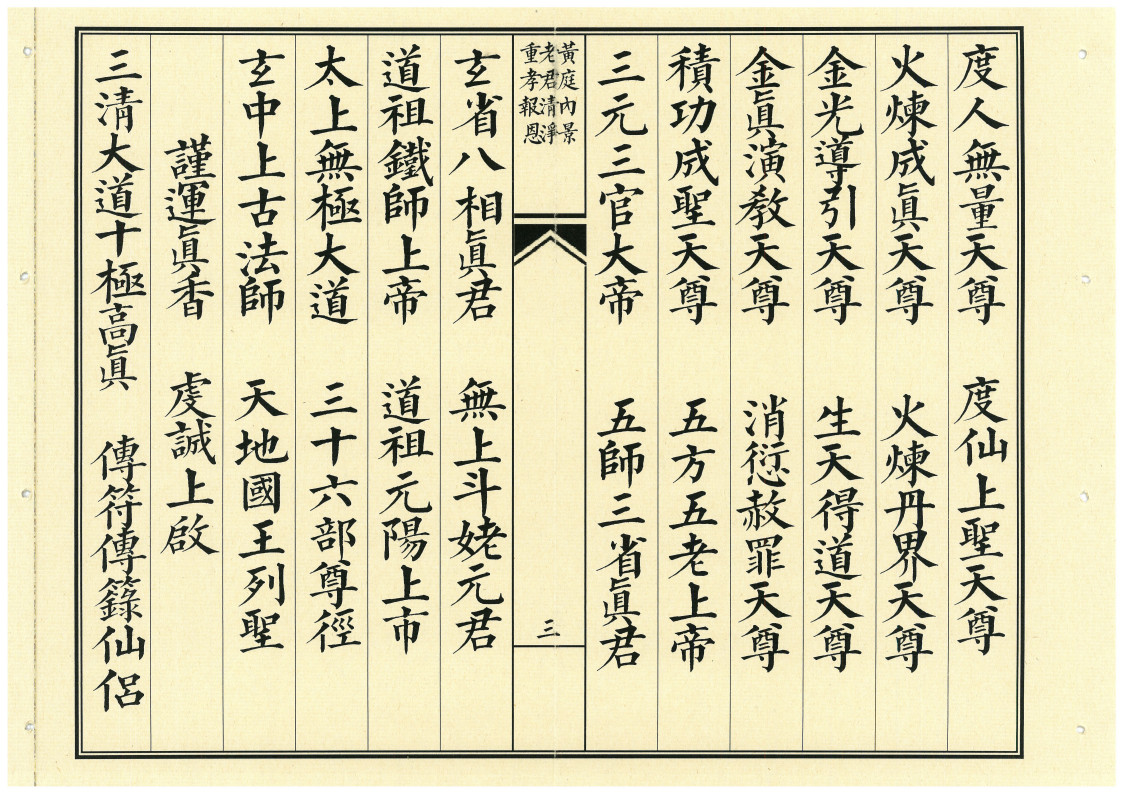 度人無量天尊　度仙上聖天尊
火煉成眞天尊　火煉丹界天尊
金光導引天尊　生天得道天尊
金眞演教天尊　消愆赦罪天尊
積功成聖天尊　五方五老上帝
三元三官大帝　五師三省眞君
黃庭內景
老君清淨
重孝報恩
三
玄省八相眞君　無上斗姥元君
道祖鐵師上帝　道祖元陽上市
太上無極大道　三十六部尊徑
玄中上古法師　天地國王列聖
謹運眞香　虔誠上啟
三清大道十極高眞　傳符傳籙仙侶